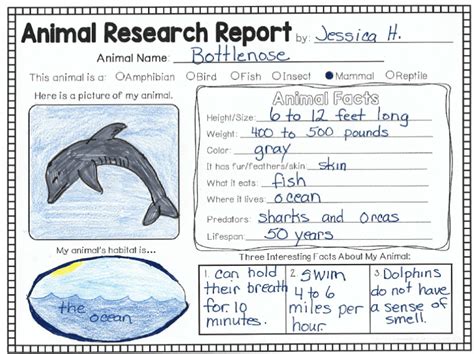 Animal Research Report by: Jessica H.
Animal Name: Bottlenose
This animal is a: Amphibian Bird Fish Insect Mammal Reptile
Here is a picture of my animal.
Animal Facts
Height/Size: 6 to 12 feet long
Weight: 400 to 500 pounds
Color: gray
It has fur/feathers/skin: skin
What it eats: fish
Where it lives: ocean
Predators: sharks and orcas
Lifespan: 50 years
My animal's habitat is...
the ocean
Three Interesting Facts About My Animal:
1. can hold
their breath
for 10
minutes.
2. Swim
4 to 6
miles per
hour.
3. Dolphins
do not have
a sense of
smell.